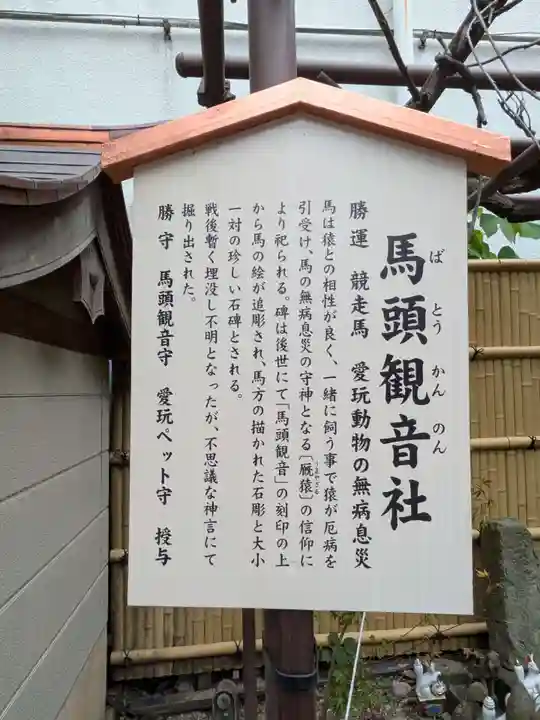 馬頭観音社
ばとうかんのん
勝運　競走馬　愛玩動物の無病息災
馬は猿との相性が良く、一緒に飼う事で猿が厄病を
引受け、馬の無病息災の守神となる〔厩猿〕の信仰に
うまやざる
より祀られる。碑は後世にて「馬頭観音」の刻印の上
から馬の絵が追彫され、馬方の描かれた石彫と大小
一対の珍しい石碑とされる。
戦後暫く埋没し不明となったが、不思議な神言にて
掘り出された。
勝守　馬頭観音守　愛玩ペット守　授与